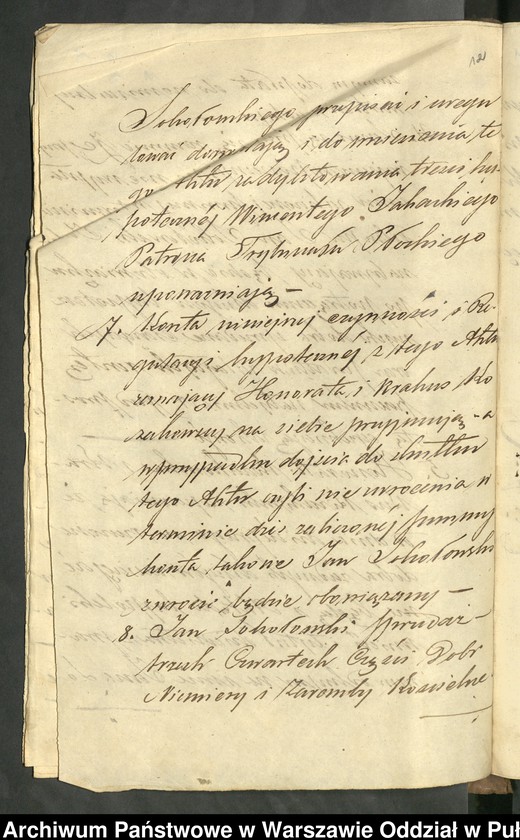 121
Sokołowskiego przepisać i uregu
lować dozwalają i do wniesienia te
go Aktu zadyktowania treści hy
potecznéj Wincentego Zabackiego
Patrona Trybunału Płockiego
upoważniają —
7. Koszta niniejszej czynności i Re-
gulacyi hypotecznéj z tego Aktu
Honorata i Kraków Ko
na siebie przyjmują — a
w przypadku dojścia do skutku
tego Aktu czyli nie uiszczenia w
terminie dziś zaliczonéj Summy
koszta takowe Jan Sokołowski
zwrócić będzie obowiązany —
8. Jan Sokołowski sprzedaż
trzech Czwartych Części Dóbr
Niemiery i Zaremby Kościelne
Archiwum Państwowe w Warszawie Oddział w Puł